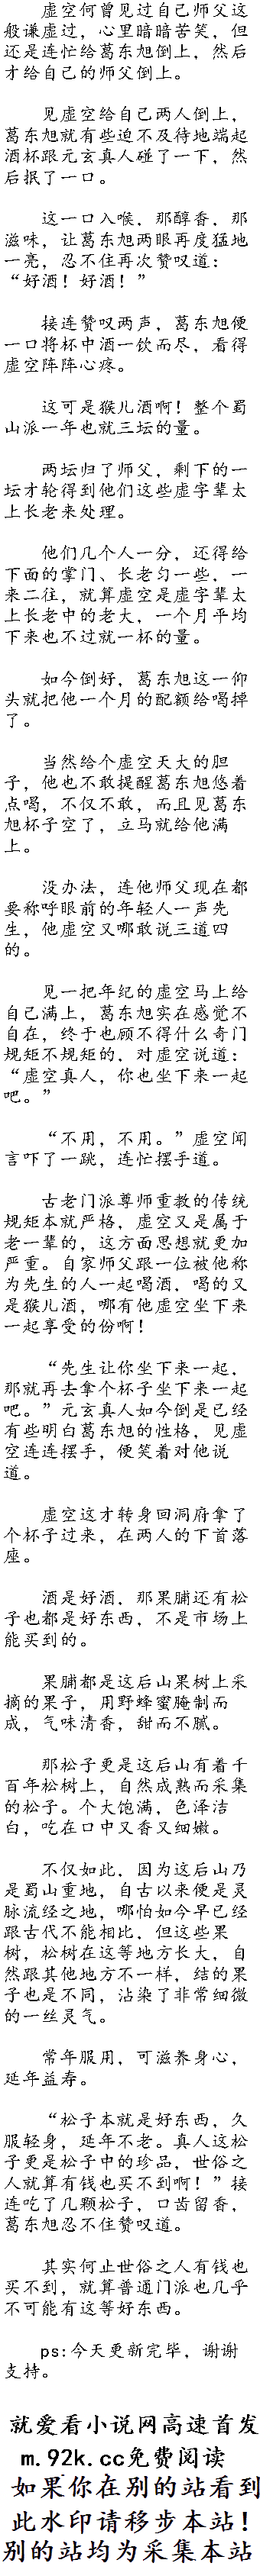 虚空何曾见过自己师父这
般谦虚过，心里暗暗苦笑，但
还是连忙给葛东旭倒上，然后
才给自己的师父倒上。
见虚空给自己两人倒上，
葛东旭就有些迫不及待地端起
酒杯跟元玄真人碰了一下，然
后抿了一口。
这一口入喉，那醇香，那
滋味，让葛东旭两眼再度猛地
一亮，忍不住再次赞叹道：
“好酒！好酒！”
接连赞叹两声，葛东旭便
一口将杯中酒一饮而尽，看得
虚空阵阵心疼。
这可是猴儿酒啊！整个蜀
山派一年也就三坛的量。
两坛归了师父，剩下的一
坛才轮得到他们这些虚字辈太
上长老来处理。
他们几个人一分，还得给
下面的掌门、长老匀一些，一
来二往，就算虚空是虚字辈太
上长老中的老大，一个月平均
下来也不过就一杯的量。
如今倒好，葛东旭这一仰
头就把他一个月的配额给喝掉
了。
当然给个虚空天大的胆
子，他也不敢提醒葛东旭悠着
点喝，不仅不敢，而且见葛东
旭杯子空了，立马就给他满
上。
没办法，连他师父现在都
要称呼眼前的年轻人一声先
生，他虚空又哪敢说三道四
的。
见一把年纪的虚空马上给
自己满上，葛东旭实在感觉不
自在，终于也顾不得什么奇门
规矩不规矩的，对虚空说道：
“虚空真人，你也坐下来一起
吧。”
“不用，不用。”虚空闻
言吓了一跳，连忙摆手道。
古老门派尊师重教的传统
规矩本就严格，虚空又是属于
老一辈的，这方面思想就更加
严重。自家师父跟一位被他称
为先生的人一起喝酒，喝的又
是猴儿酒，哪有他虚空坐下来
一起享受的份啊！
“先生让你坐下来一起，
那就再去拿个杯子坐下来一起
吧。”元玄真人如今倒是已经
有些明白葛东旭的性格，见虚
空连连摆手，便笑着对他说
道。
虚空这才转身回洞府拿了
个杯子过来，在两人的下首落
座。
酒是好酒，那果脯还有松
子也都是好东西，不是市场上
能买到的。
果脯都是这后山果树上采
摘的果子，用野蜂蜜腌制而
成，气味清香，甜而不腻。
那松子更是这后山有着千
百年松树上，自然成熟而采集
的松子。个大饱满，色泽洁
白，吃在口中又香又细嫩。
不仅如此，因为这后山乃
是蜀山重地，自古以来便是灵
脉流经之地，哪怕如今早已经
跟古代不能相比，但这些果
树，松树在这等地方长大，自
然跟其他地方不一样，结的果
子也是不同，沾染了非常细微
的一丝灵气。
常年服用，可滋养身心，
延年益寿。
“松子本就是好东西，久
服轻身，延年不老。真人这松
子更是松子中的珍品，世俗之
人就算有钱也买不到啊！”接
连吃了几颗松子，口齿留香，
葛东旭忍不住赞叹道。
其实何止世俗之人有钱也
买不到，就算普通门派也几乎
不可能有这等好东西。
ps:今天更新完毕，谢谢
支持。
就爱看小说网高速首发
m.92k.cc免费阅读
如果你在别的站看到
此水印请移步本站！
别的站均为采集本站